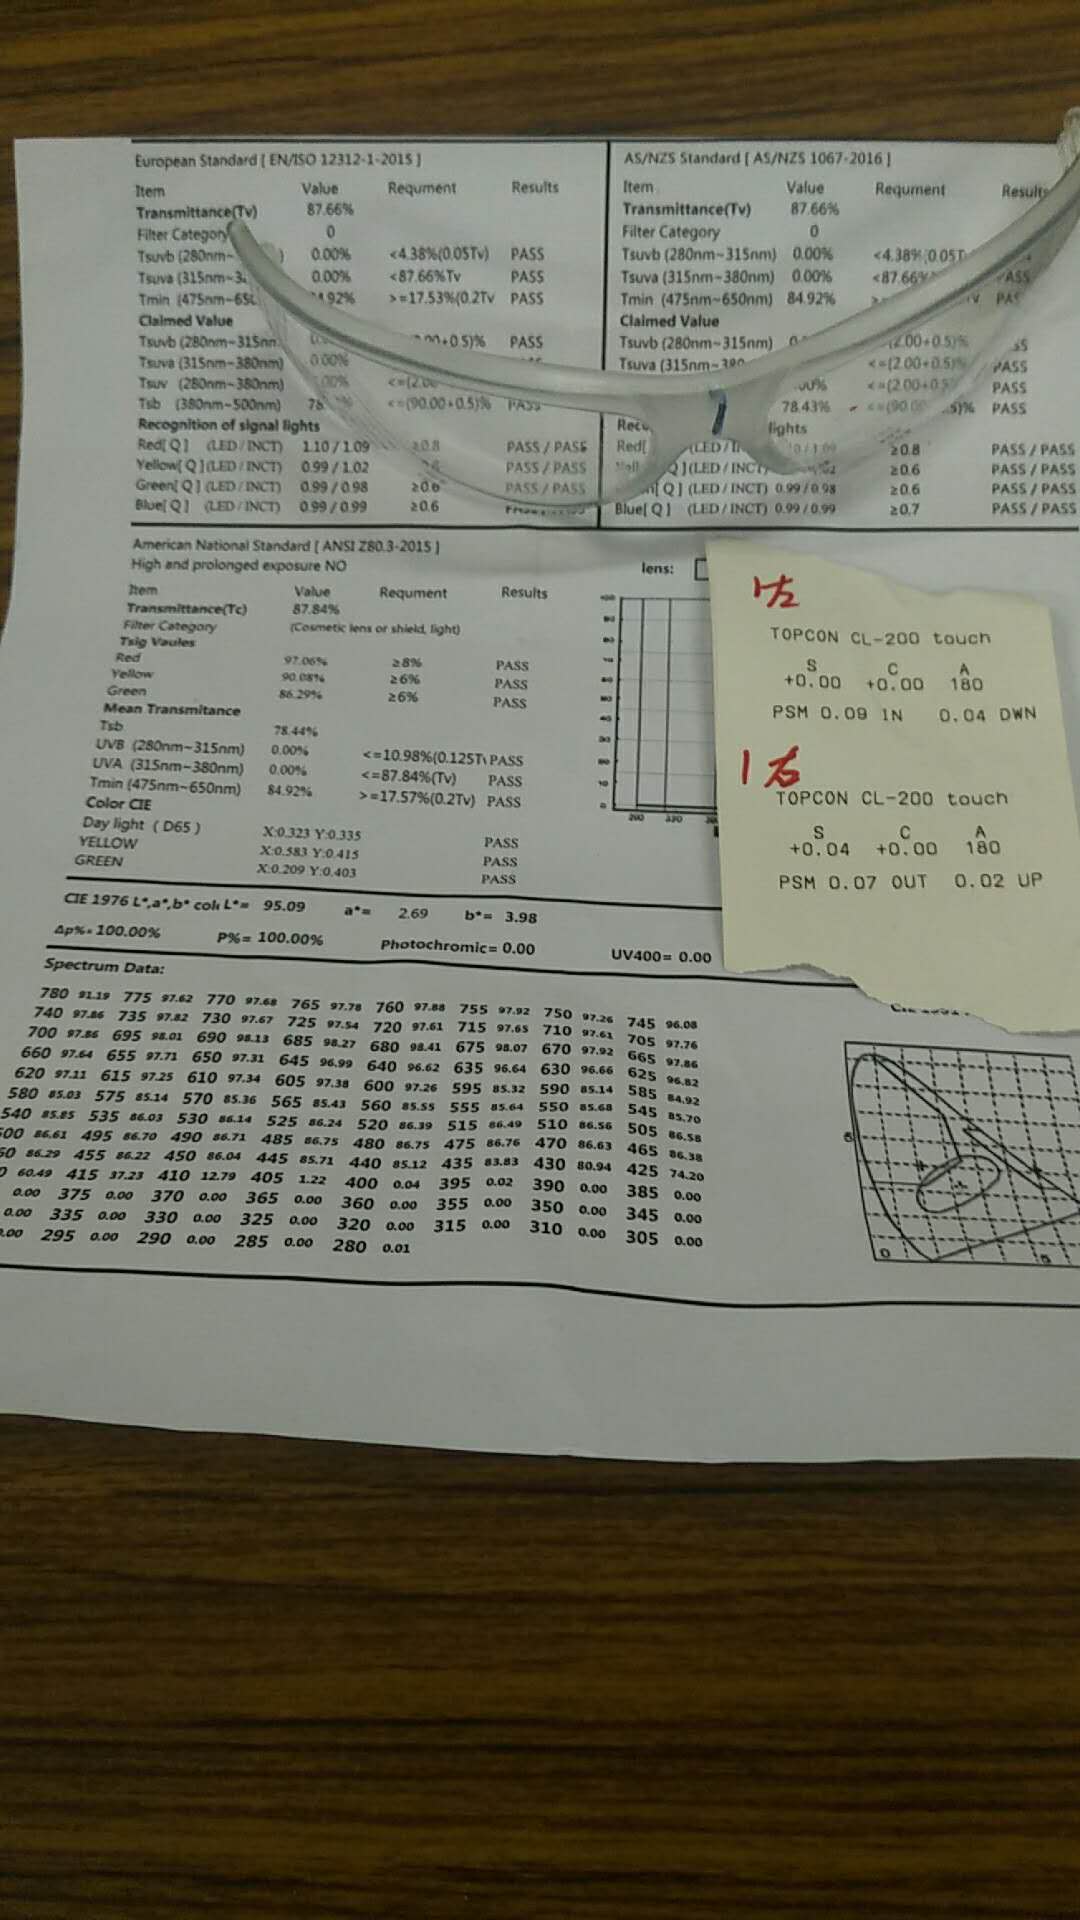 European Standard [ EN/ISO 12312-1-2015 ]
Item Value Requrment Results
Transmittance(Tv) 87.66%
Filter Category 0
Tsuvb (280nm~ ) 0.00% <4.38%(0.05Tv) PASS
Tsuva (315nm~ 0.00% <87.66%Tv PASS
Tmin (475nm~ >=17.53%(0.2Tv PASS
Claimed Value
Tsuvb (280nm~315nm +0.5)% PASS
Tsuva (315nm~380nm) 0.00%
Tsuv (280nm~380nm)
Tsb (380nm~500nm) <=(90.00+0.5)% PASS
Recognition of signal lights
Red[ Q ] (LED / INCT) 1.10 / 1.09 ≥0.8 PASS / PASS
Yellow[ Q ] (LED / INCT) 0.99 / 1.02 PASS / PASS
Green[ Q ] (LED / INCT) 0.99 / 0.98 ≥0.6 PASS / PASS
Blue[ Q ] (LED / INCT) 0.99 / 0.99 ≥0.6
AS/NZS Standard [ AS/NZS 1067-2016 ]
Item Value Requrment Results
Transmittance(Tv) 87.66%
Filter Category 0
Tsuvb (280nm~315nm) 0.00% <4.38%(0.05T
Tsuva (315nm~380nm) 0.00% <87.66% PASS
Tmin (475nm~650nm) 84.92%
Claimed Value
Tsuvb (280nm~315nm) (2.00+0.5)%
Tsuva (315nm~380 <=(2.00+0.5)% PASS
<=(2.00+0.5 PASS
78.43% PASS
lights
Red[ (LED / ≥0.8 PASS / PASS
Q ] (LED / INCT) ≥0.6 PASS / PASS
Q ] (LED / INCT) 0.99 / 0.98 ≥0.6 PASS / PASS
Blue[ Q ] (LED / INCT) 0.99 / 0.99 ≥0.7 PASS / PASS
American National Standard [ ANSI Z80.3-2015 ]
High and prolonged exposure NO
Item Value Requrment Results
Transmittance(Tc) 87.84%
Filter Category (Cosmetic lens or shield, light)
Tsig Vaules
Red 97.06% ≥8% PASS
Yellow 90.08% ≥6% PASS
Green 86.29% ≥6% PASS
Mean Transmitance
Tsb 78.44%
UVB (280nm~315nm) 0.00% <=10.98%(0.125Tv PASS
UVA (315nm~380nm) 0.00% <=87.84%(Tv) PASS
Tmin (475nm~650nm) 84.92% >=17.57%(0.2Tv) PASS
Color CIE
Day light ( D65 ) X:0.323 Y:0.335 PASS
YELLOW X:0.583 Y:0.415 PASS
GREEN X:0.209 Y:0.403 PASS
lens:
1左
TOPCON CL-200 touch
S C A
+0.00 +0.00 180
PSM 0.09 IN 0.04 DWN
1右
TOPCON CL-200 touch
S C A
+0.04 +0.00 180
PSM 0.07 OUT 0.02 UP
CIE 1976 L*,a*,b* colc L*= 95.09 a*= 2.69 b*= 3.98
Δp%= 100.00% P%= 100.00% Photochromic= 0.00 UV400= 0.00
Spectrum Data:
780 91.19 775 97.62 770 97.68 765 97.78 760 97.88 755 97.92 750 97.26 745 96.08
740 97.86 735 97.82 730 97.67 725 97.54 720 97.61 715 97.65 710 97.61 705 97.76
700 97.86 695 98.01 690 98.13 685 98.27 680 98.41 675 98.07 670 97.92 665 97.86
660 97.64 655 97.71 650 97.31 645 96.99 640 96.62 635 96.64 630 96.66 625 96.82
620 97.11 615 97.25 610 97.34 605 97.38 600 97.26 595 85.32 590 85.14 585 84.92
580 85.03 575 85.14 570 85.36 565 85.43 560 85.55 555 85.64 550 85.68 545 85.70
540 85.85 535 86.03 530 86.14 525 86.24 520 86.39 515 86.49 510 86.56 505 86.58
500 86.61 495 86.70 490 86.71 485 86.75 480 86.75 475 86.76 470 86.63 465 86.38
60 86.29 455 86.22 450 86.04 445 85.71 440 85.12 435 83.83 430 80.94 425 74.20
0 60.49 415 37.23 410 12.79 405 1.22 400 0.04 395 0.02 390 0.00 385 0.00
0.00 375 0.00 370 0.00 365 0.00 360 0.00 355 0.00 350 0.00 345 0.00
0.00 335 0.00 330 0.00 325 0.00 320 0.00 315 0.00 310 0.00 305 0.00
0.00 295 0.00 290 0.00 285 0.00 280 0.01